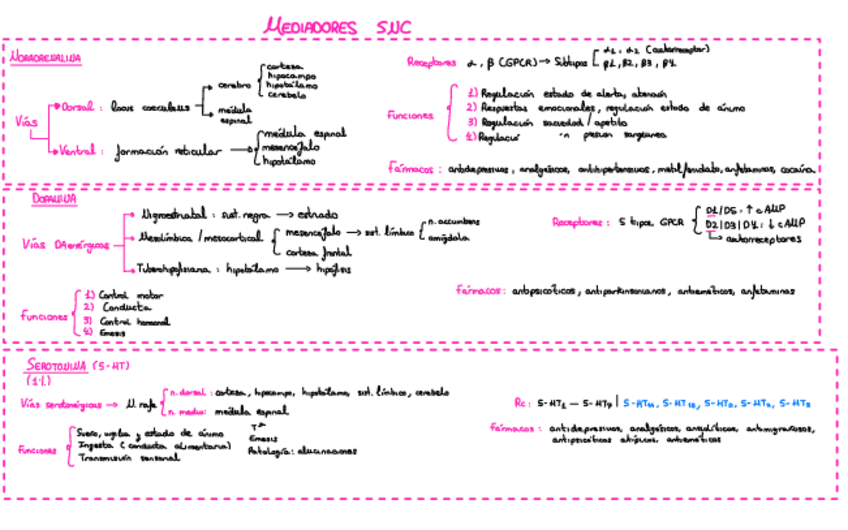 MEDIADORES SNC
NORADRENALINA
Vías
Dorsal : locus coeruleus
cerebro
corteza
hipocampo
hipotálamo
cerebelo
médula espinal
Ventral : formación reticular
médula espinal
mesencéfalo
hipotálamo
Receptores α, β (GPCR) → Subtipos
α1, α2 (autorreceptor)
β1, β2, β3, β4
Funciones
1) Regulación estado de alerta, atención
2) Respuestas emocionales, regulación estado de ánimo
3) Regulación saciedad / apetito
4) Regulació n presión sanguínea
Fármacos : antidepresivos, analgésicos, antihipertensivos, metilfenidato, anfetaminas, cocaína
DOPAMINA
Vías DAenérgicas
Nigroestriatal : sust. negra → estriado
Mesolímbica / mesocortical
mesencéfalo → sist. límbico
n. accumbens
amígdala
corteza frontal
Tuberohipofisiaria : hipotálamo → hipófisis
Receptores : 5 tipos, GPCR
D1/D5 : ↑ cAMP
D2/D3/D4 : ↓ cAMP
autorreceptores
Funciones
1) Control motor
2) Conducta
3) Control hormonal
4) Emesis
Fármacos : antipsicóticos, antiparkinsonianos, antieméticos, anfetaminas
SEROTONINA (5-HT)
(1%)
Vías serotonérgicas → N. rafe
n. dorsal : corteza, hipocampo, hipotálamo, sist. límbico, cerebelo
n. medio: médula espinal
Rc : 5-HT1 — 5-HT7 |
Funciones
Sueño, vigilia y estado de ánimo
Ingesta (conducta alimentaria)
Transmisión sensorial
Tª
Emesis
Patología : alucinaciones
Fármacos : antidepresivos, analgésicos, ansiolíticos, antimigrañosos,
antipsicóticos atípicos, antieméticos